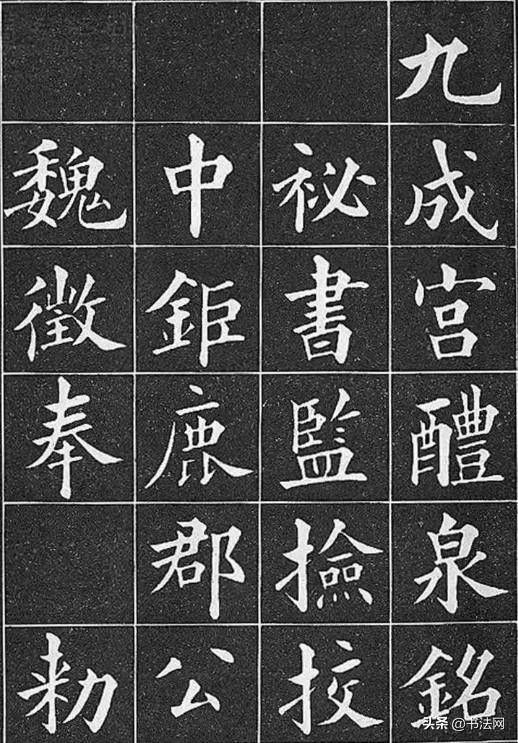 九成宮醴泉銘
祕書監撿挍
中鉅鹿郡公
魏徵奉 勑
头条 @书法网